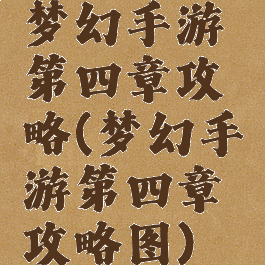 梦幻手游
第四章攻
略(梦幻手
游第四章
攻略图)